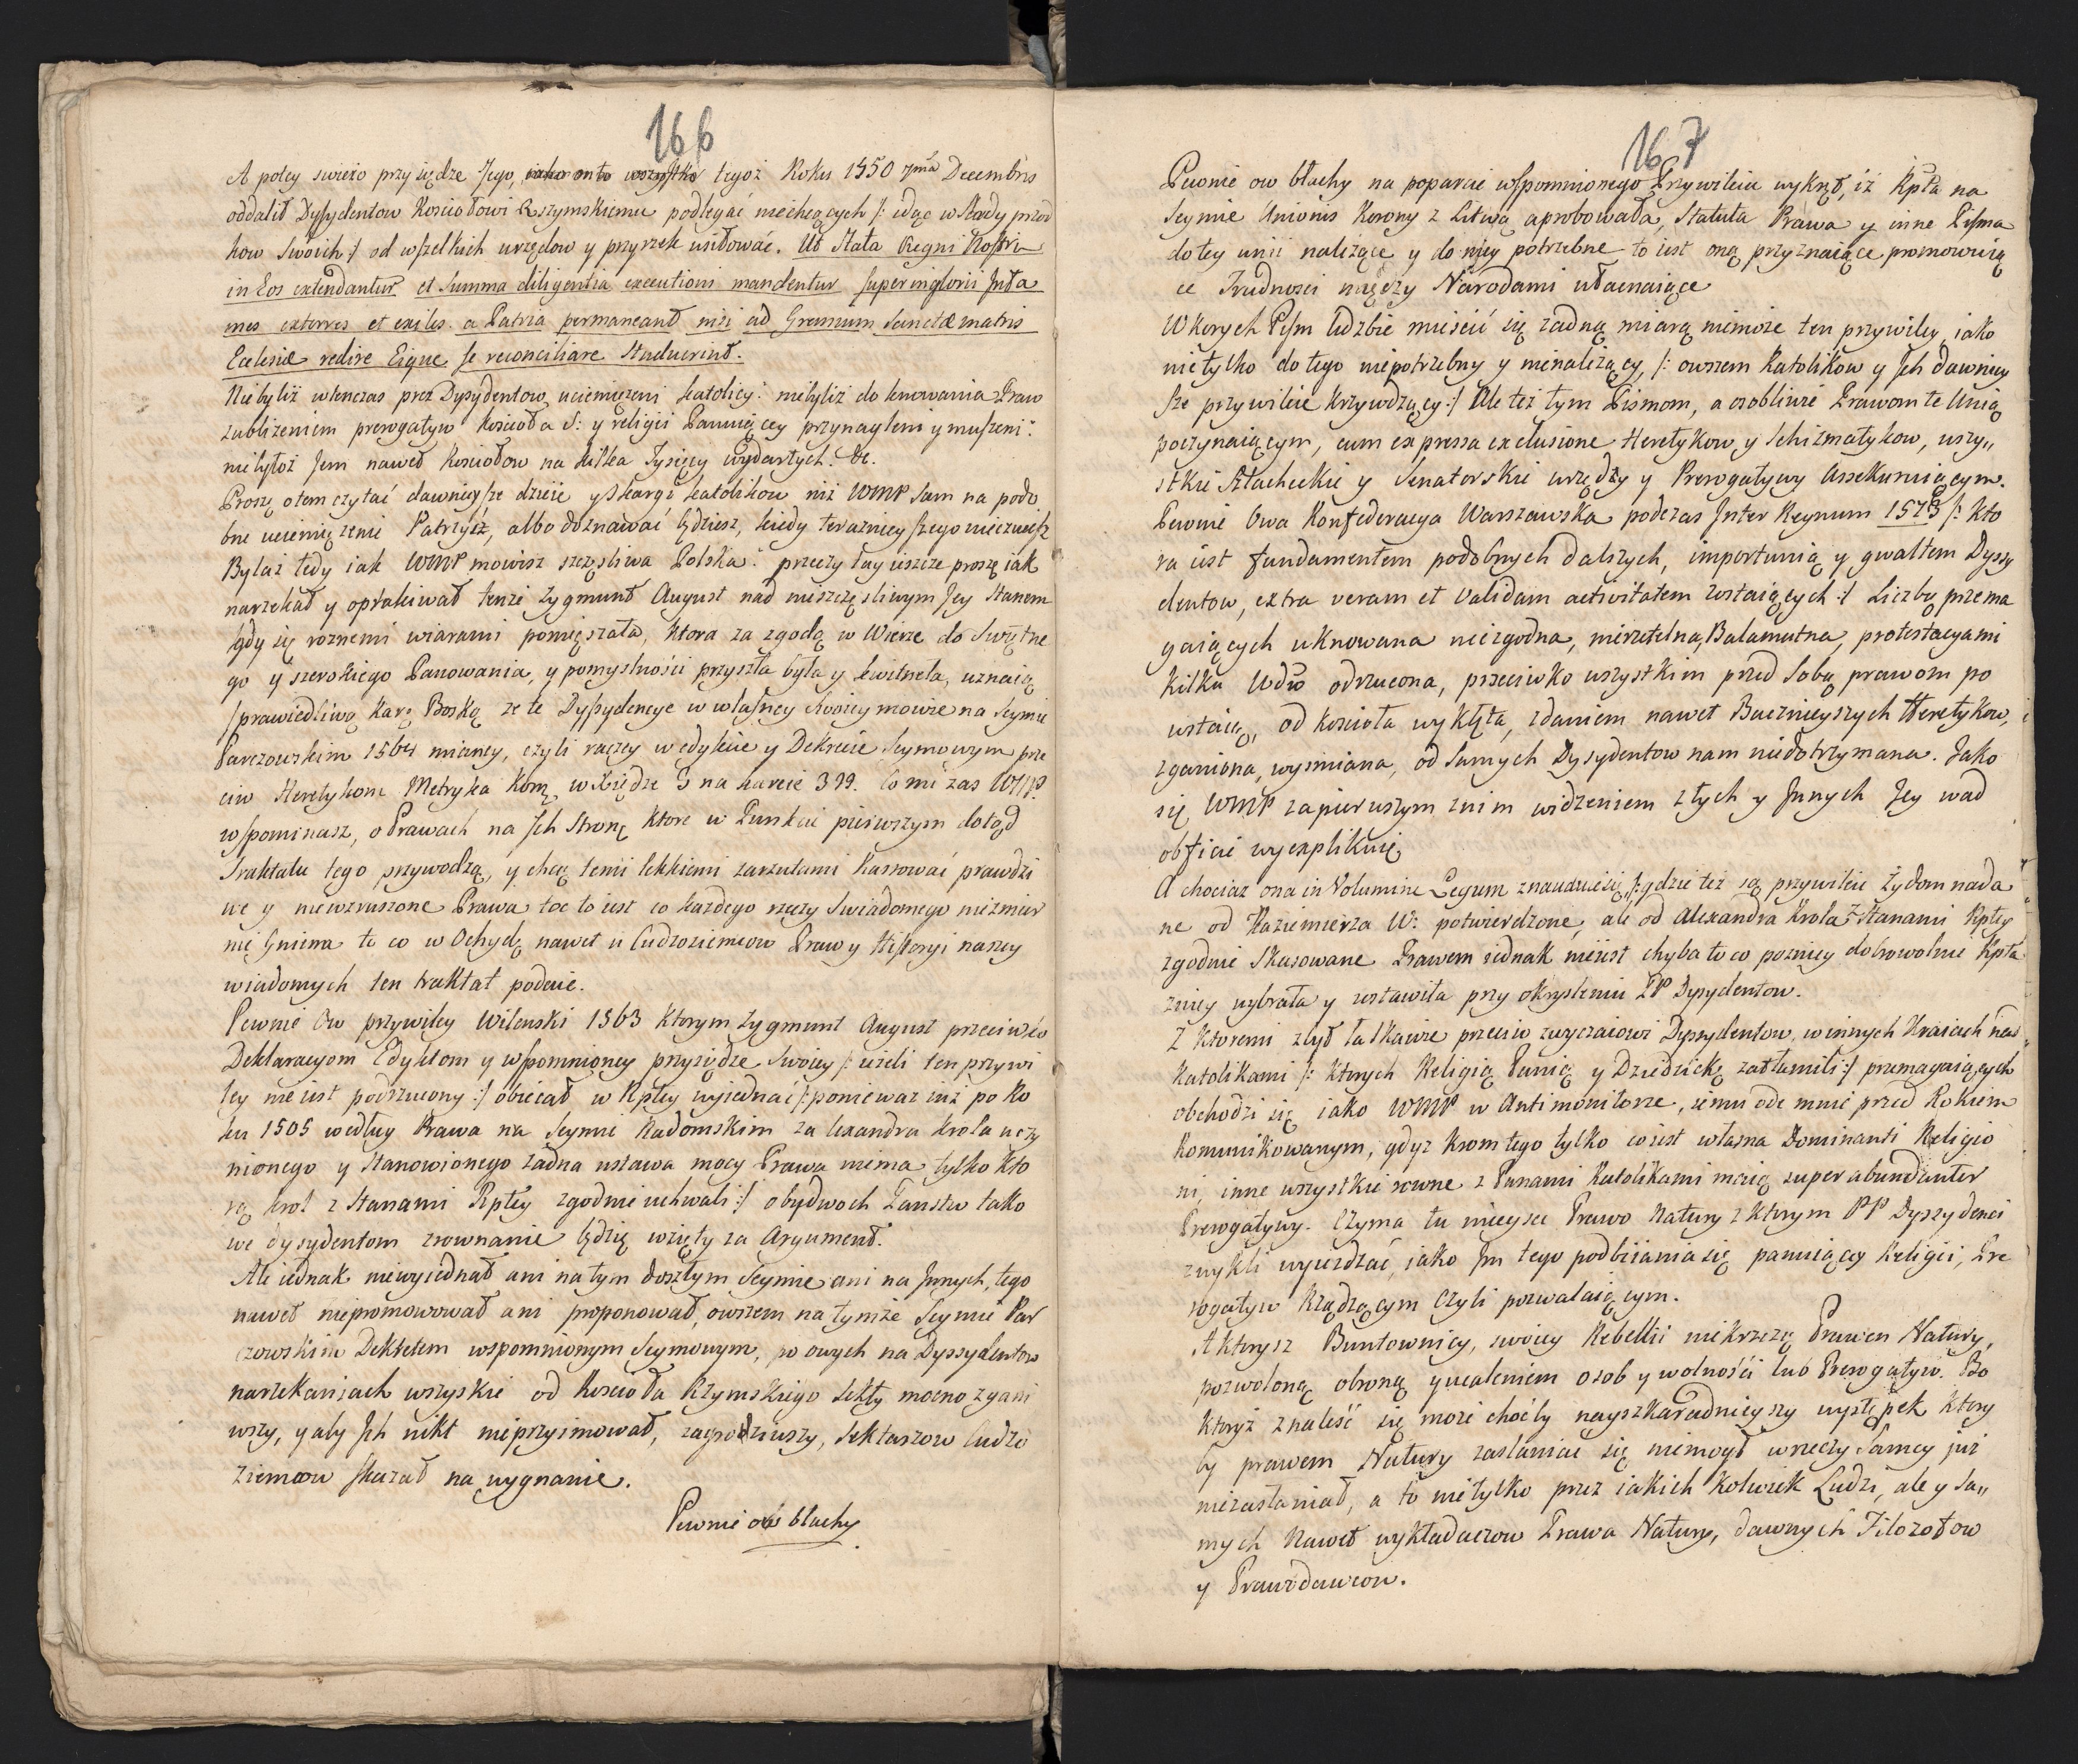 166
A potey swieżo przysiędze Jego, iako on to wszystko tegoż Roku 1550 7ma Decembris
oddalił Dyssydentow Kosciołowi Rzymskiemu podlegać niechcących /: idąc w Slady przod
kow Swoich :/ od wszelkich urzędow y przyrzek usiłować. Ut Stata Regni Nostri
in Eos extendantur et Summa diligentia executioni mandentur super inglorii Infa
mes extorres et exiles a Patria permaneant nisi ad Gremium Sanctæ matris
Eclesiæ redire Eique se reconciliare Studuerint.
Niebyliż wtenczas prez Dysydentow uciemiężeni katolicy: niebyliż do knowania Praw
z ubliżeniem prerogatyw Koscioła S: y religii Panuiącey przynagleni y muszeni:
niebyłoż Jem naweť Kosciołow na kilka Tysięcy wydartych. &c.
Proszę o tem czytać dawnieysze dzieie y skargi katolikow niż WMP sam na podo
bne uciemiężenie Patrzyćż, albo doznawać będziesz, kiedy teraznieyszego nieczuiesz
Bylaż tedy iak WMP mowisz szczęsliwa Polska: przeczytay ieszcze proszę iak
narzekał y opłakiwał tenże Zygmunt August nad nieszczęsliwym Jey Stanem
gdy się roznemi wiarami pomięszała, ktora za zgodą w Wierze do Swiętne
go y szerokiego Panowania, y pomyslności przyszła była y kwitnęła, uznaią
sprawiedliwą karę Boską ze te Dyssydencye w własney Swoiey mowie na Seymie
Parczowskim 1564 mianey, czyli raczey w edykcie y Dekrecie Seymowym prze
ciw Heretykom Metryka Korn. w Xiędze G na karcie 399. Co mi zas WMP.
wspominasz, o Prawach na Jch Stronę ktore w Punkcie pierwszym dotąd
Traktatu tego przywodzą, y chcą temi lekkiemi zarzutami kassować prawdzi
we y niewzruszone Prawa toc to iest co każdego rzeczy Swiadomego niezmier
nie Gniewa to co w Ochydę nawet u Cudzoziemcow Praw y Historyi naszey
wiadomych ten traktat podaie.
Pewnie Ow przywiley Wilenski 1563 ktorym Zygmunt August przeciwko
Deklaracyom Edyktom y wspomnioney przysiędze Swoiey /: ieżeli ten przywi
ley nie iest podrzucony :/ obiecał w Rpltey wyiednać /: poniewaz iuż po Ro
ku 1505 według Prawa na Seymie Radomskim za lexandra krola uczy
nionego y Stanowionego żadna ustawa mocy Prawa niema tylko kto
rą krol z Stanami Rpltey zgodnie uchwali :/ obydwoch Panstw tako
we dysydentom zrownanie będzię wzięty za Argument.
Ale iednak niewyiednał ani na tym doszłym Seymie ani na Jnnych, tego
nawet niepromowował ani proponował, owszem na tymże Seymie Par
czowskim Dekretem wspomnionym Seymowym, po owych na Dyssydentow
narzekaniach wszyskie od Koscioła Rzymskiego Sekty mocno zgani
wszy, y aby Jch nikt nieprzyimował, zagrodziwszy, Sektarzow Cudzo
ziemcow skazał na wygnanie.
Pewnie ow błachy
167
Pewnie ow błachy na poparcie wspomnionego Przywileiu wykręt, iż Rplta na
Seymie Unionis Korony z Litwą aprobowała, Statuta Prawa y inne Pisma
do tey unii należące y do niey potrzebne to iest oną przyznaiące promowuią
ce Trudnosci między Narodami ułacnaiące
W ktorych Pism liczbie miescić się żadną miarą niemoże ten przywiley, iako
nietylko do tego niepotrzebny y nienależący, /: owszem Katolikow y Jch dawniey
sze przywileie krzywdzący :/ Ale też tym Pismom, a osobliwie Prawom te Unią
poczynaiącym, cum expressa exclusione Heretykow y Schizmatykow, wszy„
stkie Szlacheckie y Senatorskie urzędzy y Prerogatywy Assekuruiącym.
Pewnie Owa Konfederacya Warszawska podczas Inter Regnum 1573 /: kto
ra iest fundamentem podobnych dalszych, importunią y gwałtem Dyssy
dentow, extra veram et validam activitatem zostaiących :/ Liczbę przema
gaiących uknowana niezgodna, nierzetelna, Bałamutna, protestacyami
kilku Wdw odrzucona, przeciwko wszystkim przed Sobą prawom po
wstaiąca, od koscioła wyklęta, zdaniem nawet Bacznieyszych Heretykow,
zganiona, wysmiana, od Samych Dysydentow nam niedotrzymana. Jako
się WMP za pierwszym z nim widzeniem z tych y Jnnych Jey wad
obficie wyexplikuię
A chociaz ona in Volumine Legum znayduie się /: gdzie też są przywileie Żydom nada
ne od Kazimierza W: potwierdzone, ale od Alexandra Krola z Stanami Rpltey
zgodnie Skasowane Prawem iednak nieiest chyba to co pozniey dobrowolnie Rplta
zniey wybrała y zostawiła przy okrysleniu PP Dysydentow.
Z ktoremi zbyt łaskawie przeciw zwyczaiowi Dyssydentow, winnych Kraiach nad
Katolikami /: ktorych Religią Panią y Dziedzickę zatłumili :/ przemagaiących
obchodzi się iako WMP w Antimonitorze, iemu ode mnie przed Rokiem
komunikowanym, gdyż krom tego tylko co iest własna Dominanti Religio
ni, inne wszystkie rowne z Panami Katolikami maią superabundanter
Prerogatywy. Czyma tu mieysce Prawo Natury z ktorym PP Dyssydenci
zwykli wyiezdżać, iako Jm tego podbiiania się panuiącey Religii, Pre
rogatyw Rządzącym Czyli pozwalaiącym.
A ktorysz Buntownicy, swoiey Rebellii niekrzczą Prawem Natury,
pozwoloną obroną y ucaleniem osob y wolności lub Prerogatyw. Bo
ktoryż znaleść się może choćby nayszkaradnieyszy występek ktory
by prawem Natury zasłaniac się niemogł w rzeczy Samey już
niezasłaniał, a to nietylko przez iakich kolwiek Ludzi, ale y Sa„
mych Nawet wykładaczow Prawa Natury, dawnych Filozofow
y Prawodawcow.